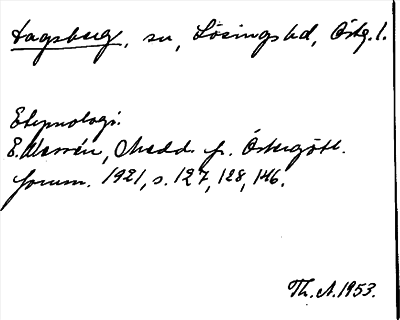 Dagsberg, sn, Lösings hd, Östg. l.
Etymologi.
E. Norén, Medd. fr. Östergötl.
fornm. 1921, s. 127, 128, 146.
Th. A. 1953.